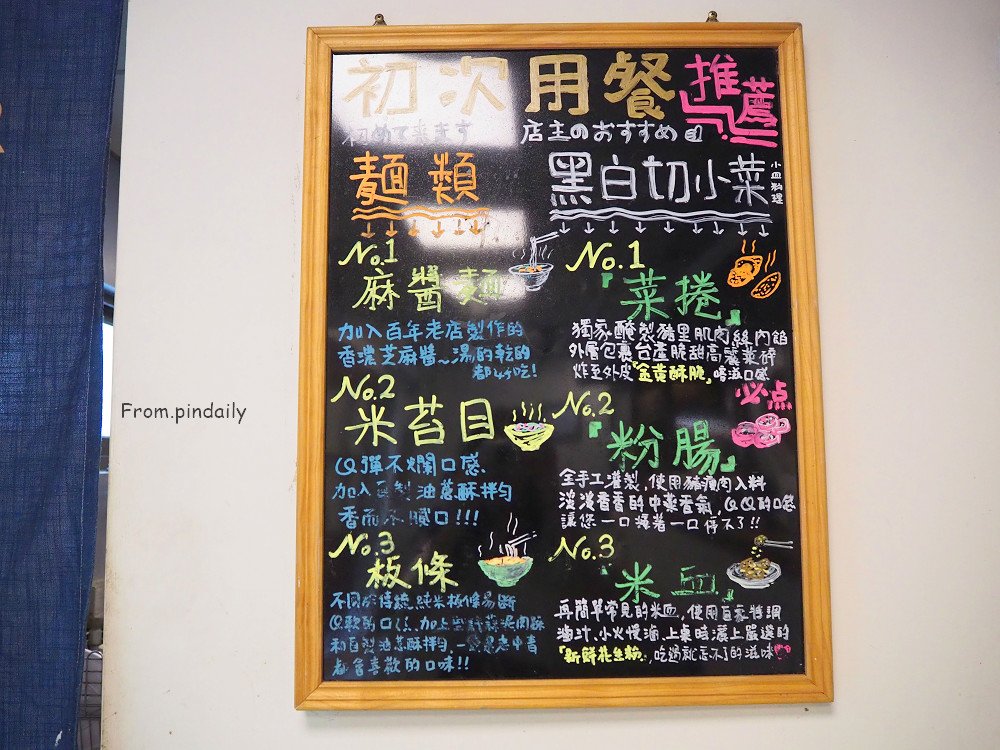 初次用餐推薦
初めて来ます
店主のおすすめ
麵類
No.1
麻醬麵
加入百年老店製作的
香濃芝麻醬~湯的乾的
都好吃!
No.2
米苔目
QQ彈不爛口感、
加入自製油蔥酥拌勻
香而不膩口!!!
No.3
板條
不同於傳統純米板條易斷
和自製油蔥酥拌勻,一
都會喜歡的口味!!
黑白切小菜
小皿料理
No.1
『菜捲』
獨家醃製豬里肌肉絲內餡
外層包裹台產脆甜高麗菜碎
炸至外皮「金黃酥脆」口感
必点
No.2
『粉腸』
全手工灌製,使用豬瘦肉入料
淡淡香香的中藥香氣,QQ的口感
讓您一口接著一口停不了!!
No.3
米血』
再簡單常見的米血,使用自家特調
油汁、小火慢滷、上桌時灑上嚴選的
「新鮮花生粉」,吃過就忘不了的滋味
From.pindaily